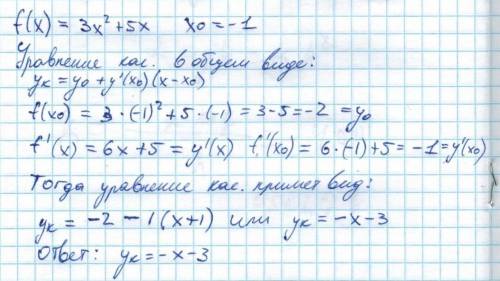 f(x) = 3x² + 5x x0 = -1
Уравнение кас. в общем виде:
yк = y0 + y'(x0)(x - x0)
f(x0) = 3 · (-1)² + 5 · (-1) = 3 - 5 = -2 = y0
f'(x) = 6x + 5 = y'(x) f'(x0) = 6 · (-1) + 5 = -1 = y'(x0)
Тогда уравнение кас. примет вид:
yк = -2 - 1(x+1) или yк = -x - 3
Ответ: yк = -x - 3